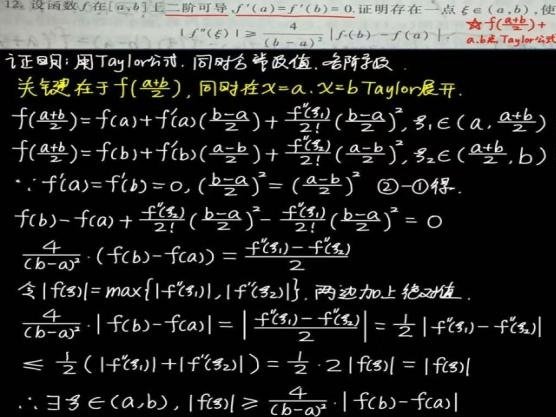 12. 设函数 f 在[a,b]上二阶可导, f'(a)=f'(b)=0. 证明存在一点 ξ∈(a,b), 使
|f''(ξ)| ≥ 4/(b-a)² |f(b)-f(a)|.
☆ f((a+b)/2)+
a.b点Taylor公式
证明: 用Taylor公式. 同时含端点值. 各阶导数.
关键在于 f((a+b)/2), 同时在x=a. x=b Taylor展开.
f((a+b)/2)=f(a)+f'(a)((b-a)/2)+f''(ξ₁)/2!((b-a)/2)², ξ₁∈(a, (a+b)/2)
f((a+b)/2)=f(b)+f'(b)((a-b)/2)+f''(ξ₂)/2!((a-b)/2)², ξ₂∈((a+b)/2, b)
∵ f'(a)=f'(b)=0, ((b-a)/2)²=((a-b)/2)² ②-①得.
f(b)-f(a)+f''(ξ₂)/2!((b-a)/2)²-f''(ξ₁)/2!((b-a)/2)²=0
4/(b-a)²·(f(b)-f(a))=(f''(ξ₁)-f''(ξ₂))/2
令|f''(ξ)|=max{|f''(ξ₁)|,|f''(ξ₂)|}. 两边加上绝对值.
4/(b-a)²·|f(b)-f(a)|=|(f''(ξ₁)-f''(ξ₂))/2|=1/2|f''(ξ₁)-f''(ξ₂)|
≤1/2(|f''(ξ₁)|+|f''(ξ₂)|)=1/2·2|f''(ξ)|=|f''(ξ)|
∴ ∃ξ∈(a,b), |f''(ξ)|≥4/(b-a)²·|f(b)-f(a)|